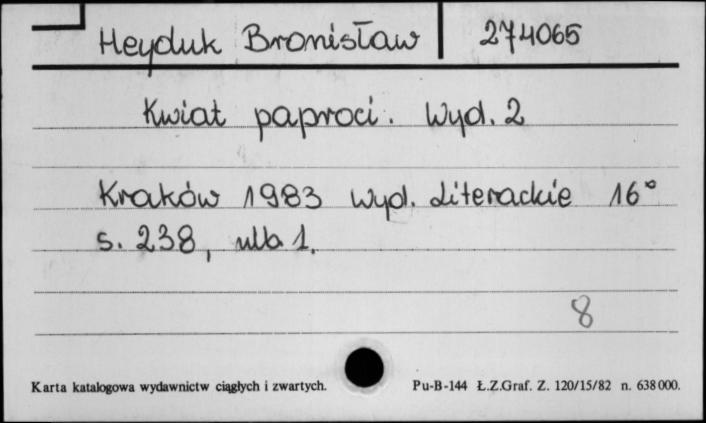 Heyduk Bronisław 274065
Kwiat paproci. Wyd. 2
Kraków 1983 Wyd. Literackie 16°
s. 238, nlb 1.
8
Karta katalogowa wydawnictw ciągłych i zwartych. Pu-B-144 Ł.Z.Graf. Z. 120/15/82 n. 638000.